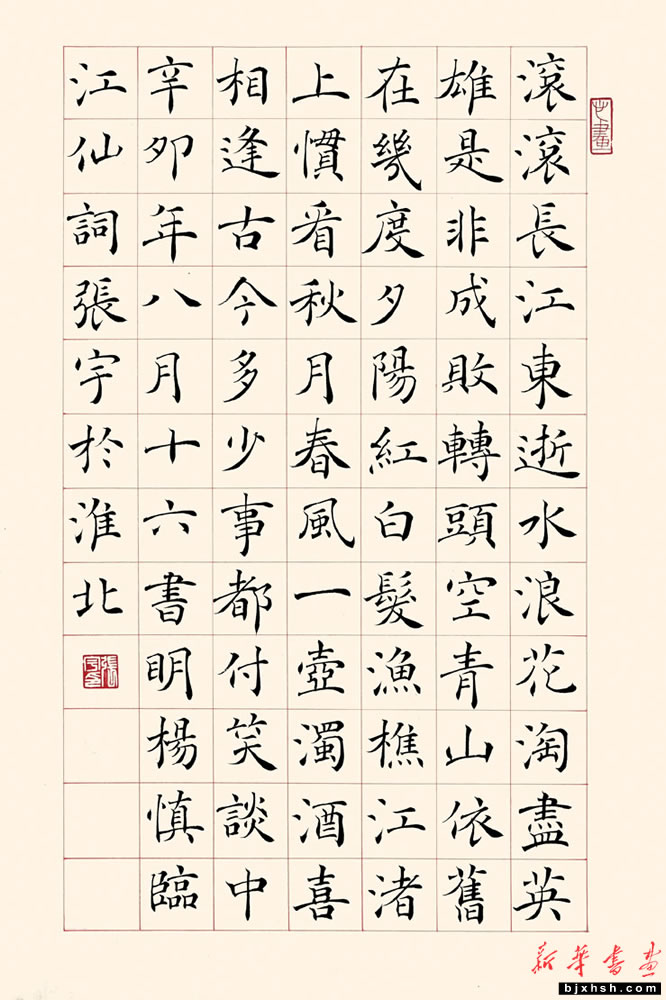 滾滾長江東逝水浪花淘盡英
雄是非成敗轉頭空青山依舊
在幾度夕陽紅白髮漁樵江渚
上慣看秋月春風一壺濁酒喜
相逢古今多少事都付笑談中
辛卯年八月十六書明楊慎臨
江仙詞張宇於淮北
新華書畫
bjxhsh.com